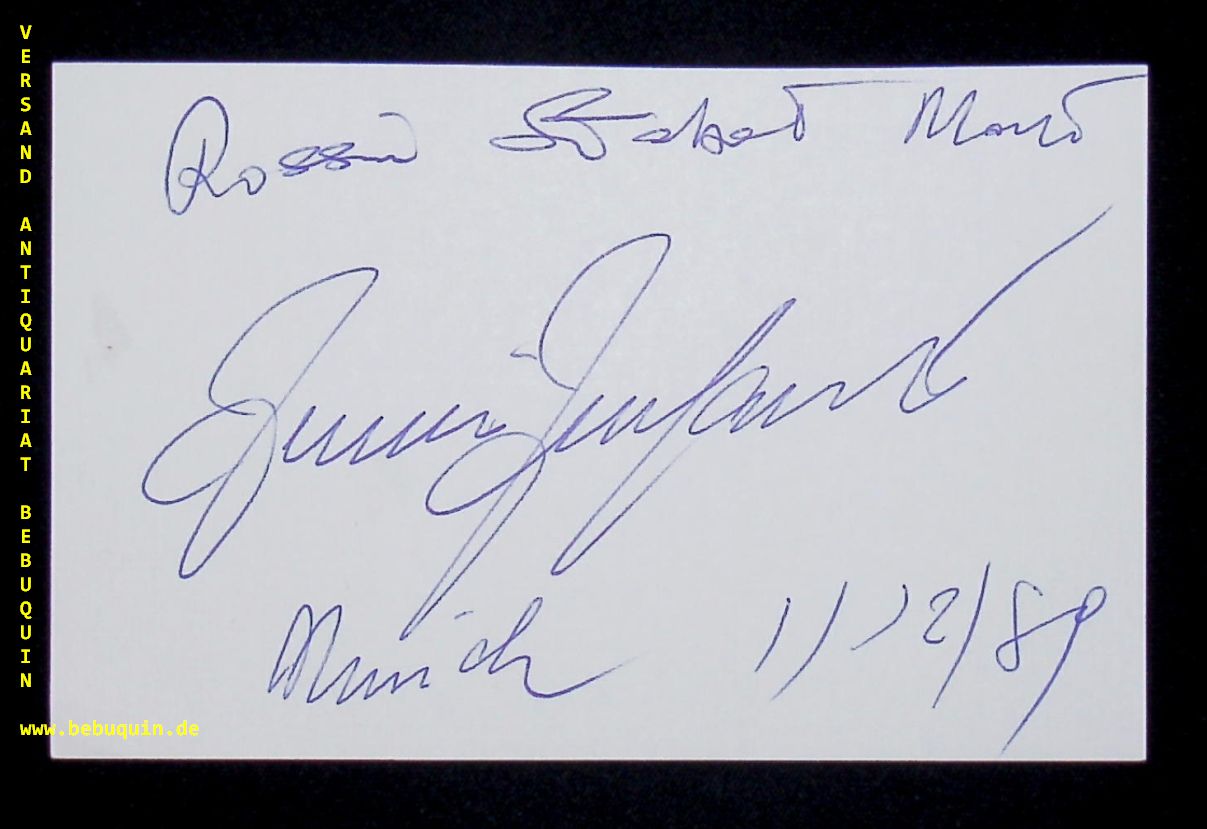 VERSAND ANTIQUARIAT BEBUQUIN
Rossini Stabat Mater
Munich 1/12/89
www.bebuquin.de